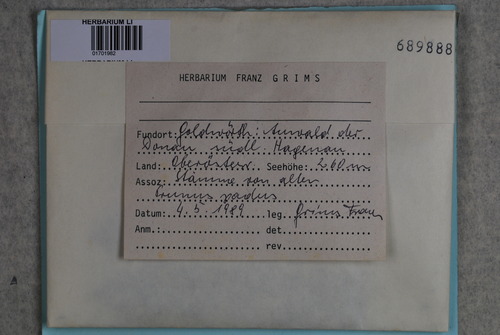 HERBARIUM LI
01701982
689888
HERBARIUM FRANZ GRIMS
Fundort: Goldwörth: Auwald der
Donau südl. Hagenau
Land: Oberösterr. Seehöhe: 260 m
Assoz: Stämme von alten
Prunus padus
Datum: 9.5.1989 leg. Grims Franz
Anm.: det.
rev.